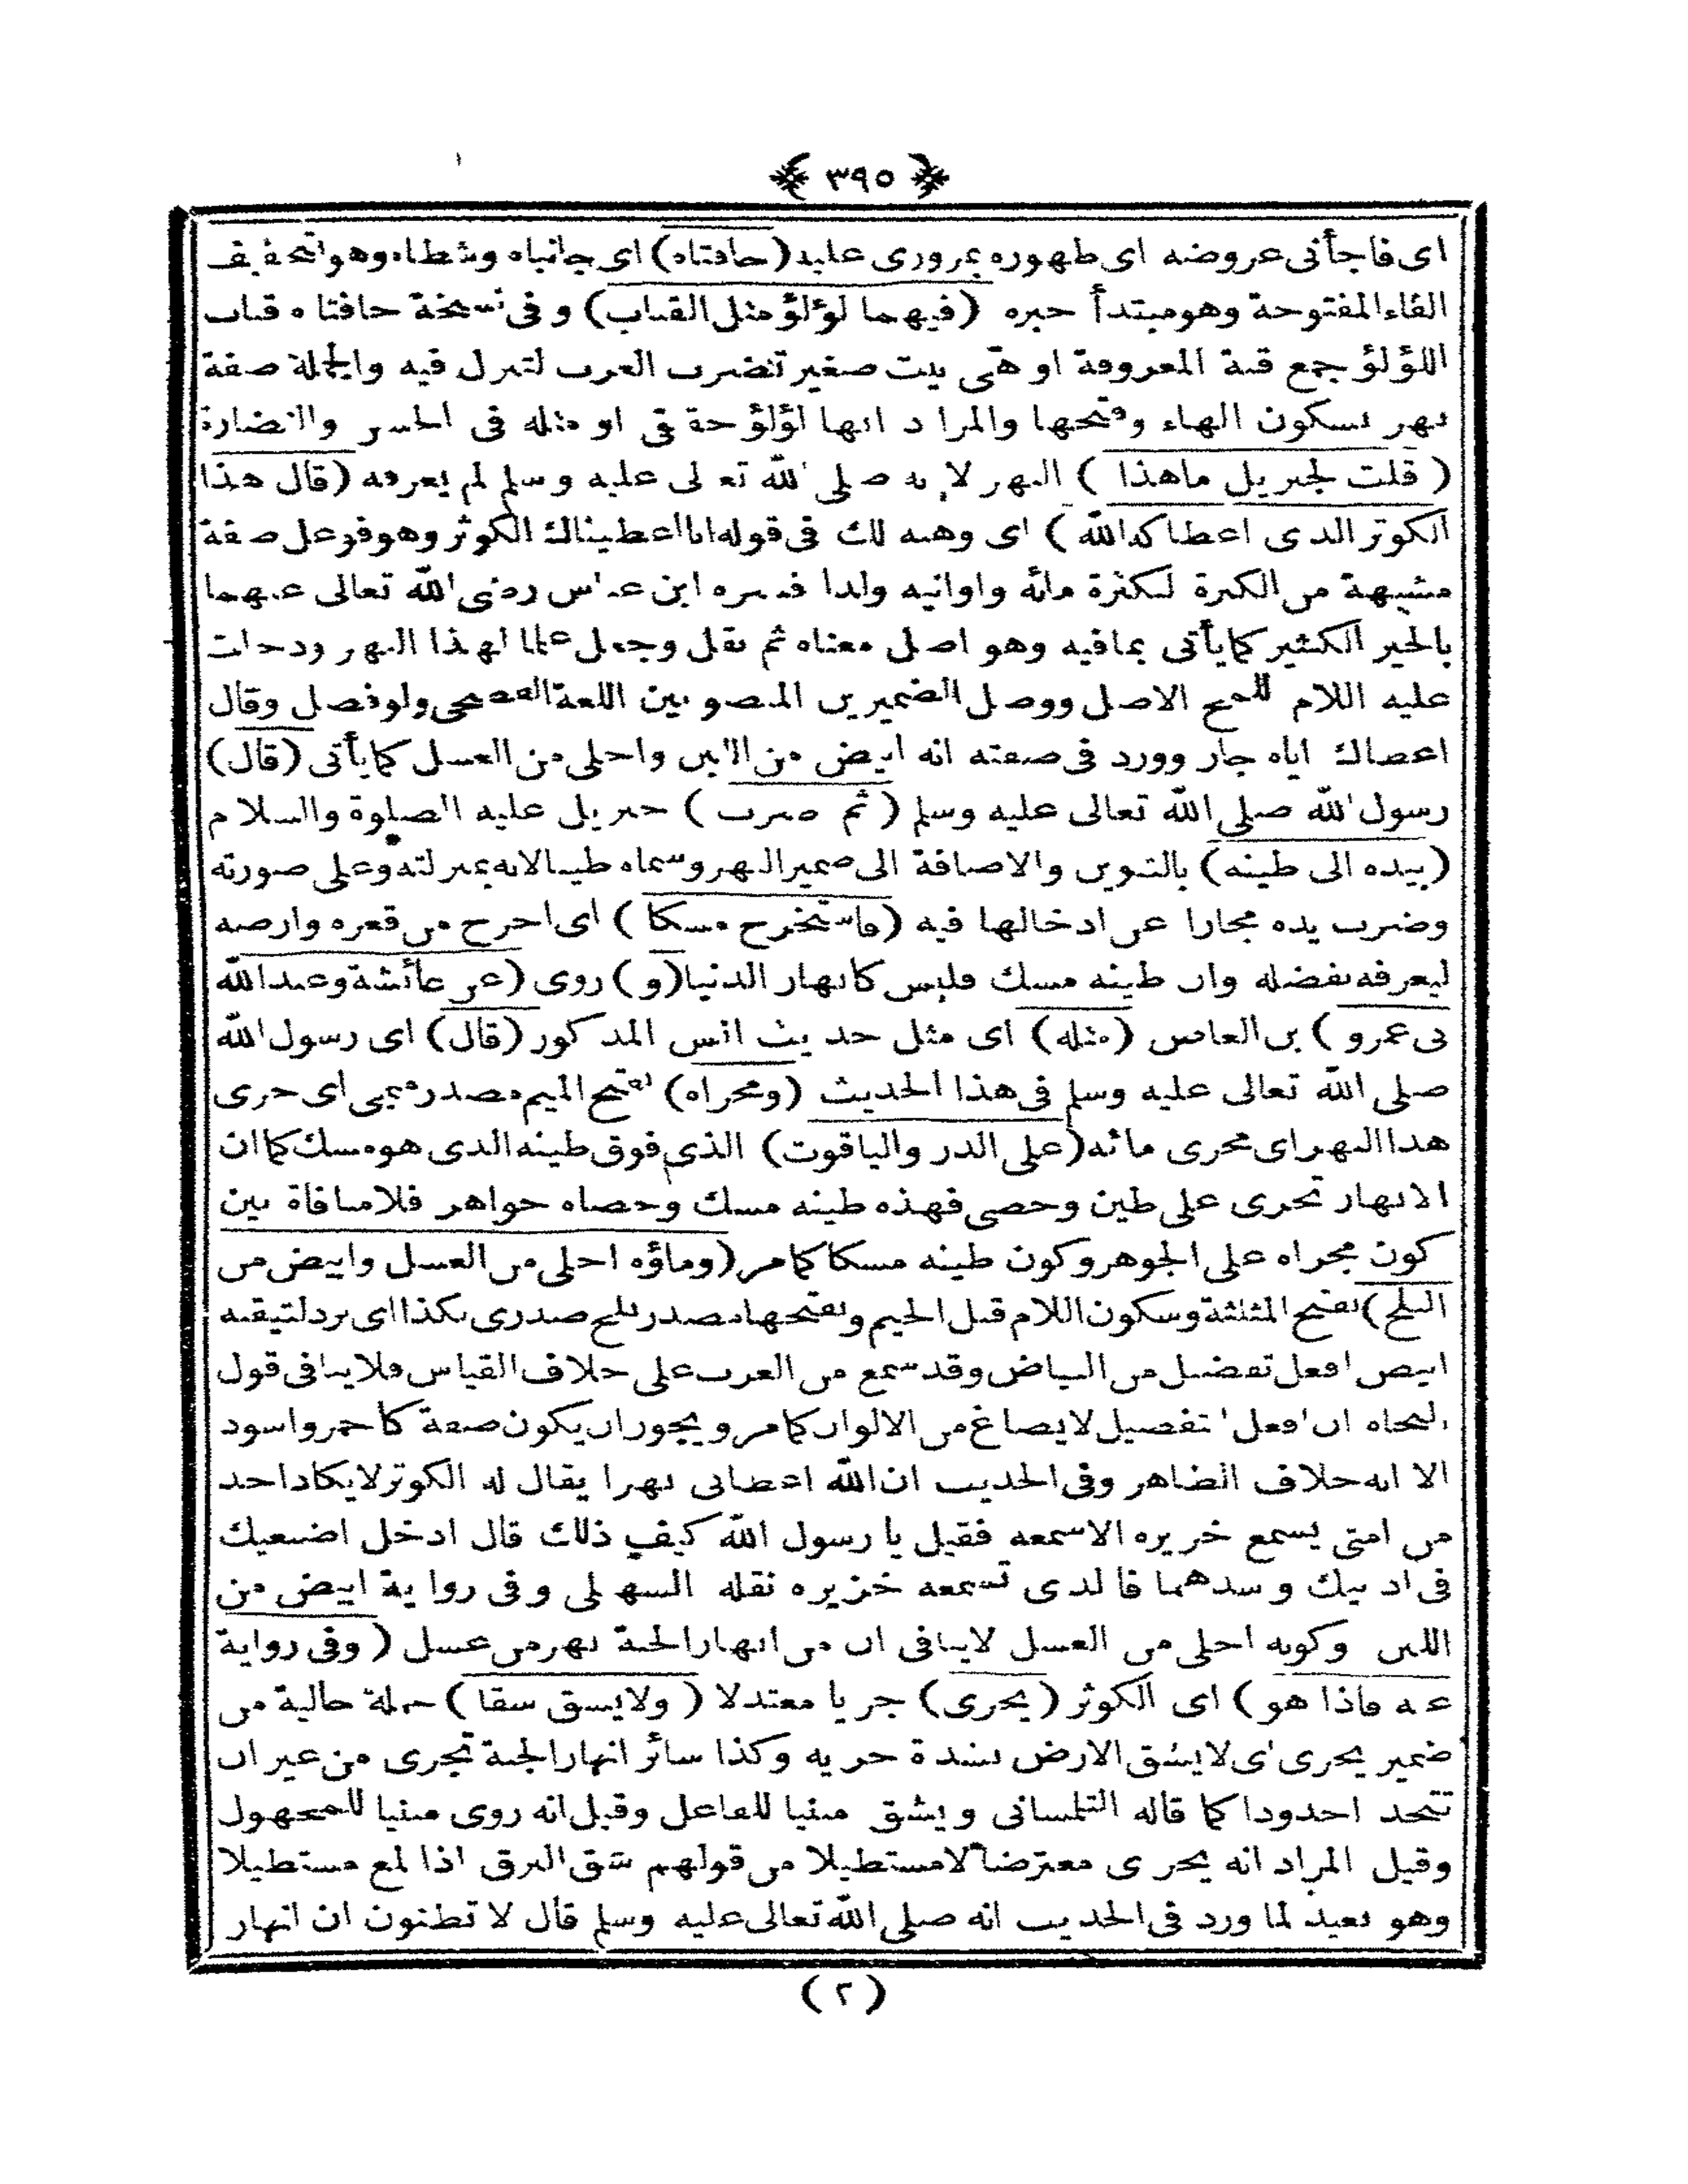 ﴿ ٣٩٥ ﴾
اى فاجأنى عروضه اى ظهوره بمرورى عليه (حافتاه) اى جانباه وشطاه وهو بتخفيف
الفاء المفتوحة وهو مبتدأ خبره (فيهما لؤلؤ مثل القباب) وفى نسخة حافتاه قباب
اللؤلؤ جمع قبة المعروفة او هى بيت صغير تضرب العرب لتنزل فيه والجملة صفة
نهر بسكون الهاء وفتحها والمراد انها لؤلؤ حقيقى او مثله فى الحسن والنضارة
(قلت لجبريل ماهذا) النهر لانه صلى الله تعالى عليه وسلم لم يعرفه (قال هذا
الكوثر الذى اعطاكه الله) اى وهبه لك فى قوله انا اعطيناك الكوثر وهو فوعل صفة
مشبهة من الكثرة لكثرة مائه واوانيه ولذا فسره ابن عباس رضى الله تعالى عنهما
بالخير الكثير كما يأتى بمافيه وهو اصل معناه ثم نقل وجعل علما لهذا النهر ودخلت
عليه اللام للمح الاصل ووصل الضميرين المنصوبين اللغة الفصحى ولو فصل وقال
اعطاك اياه جاز وورد فى صفته انه ابيض من اللبن واحلى من العسل كما يأتى (قال)
رسول الله صلى الله تعالى عليه وسلم (ثم ضرب) جبريل عليه الصلوة والسلام
(بيده الى طينه) بالتنوين والاضافة الى ضمير النهر وسماه طينا لانه بمنزلته وعلى صورته
وضرب يده مجازا عن ادخالها فيه (فاستخرج مسكا) اى اخرج من قعره وارضه
ليعرفه بفضله وان طينه مسك فليس كانهار الدنيا (و) روى (عن عائشة وعبدالله
بن عمرو) بن العاص (مثله) اى مثل حديث انس المذكور (قال) اى رسول الله
صلى الله تعالى عليه وسلم فى هذا الحديث (ومجراه) بفتح الميم مصدر ميمى اى جرى
هذا النهر اى مجرى مائه (على الدر والياقوت) الذى فوق طينه الذى هو مسك كما ان
الانهار تجرى على طين وحصى فهذه طينه مسك وحصاه جواهر فلا منافاة بين
كون مجراه على الجوهر وكون طينه مسكا كما مر (وماؤه احلى من العسل وابيض من
الثلج) بفتح المثلثة وسكون اللام قبل الجيم وبفتحها مصدر ثلج صدرى بكذا اى برد لتيقنه
ابيض افعل تفضيل من البياض وقد سمع من العرب على خلاف القياس فلا ينافى قول
النحاه ان افعل تفضيل لا يصاغ من الالوان كما مر ويجوز ان يكون صفة كاحمر واسود
الا انه خلاف الظاهر وفى الحديث ان الله اعطانى نهرا يقال له الكوثر لا يكاد احد
من امتى يسمع خريره الا سمعه فقيل يا رسول الله كيف ذلك قال ادخل اصبعيك
فى اذنيك وسدهما فالذى تسمعه خريره نقله السهيلى وفى رواية ابيض من
اللبن وكونه احلى من العسل لاينافى ان من انهار الجنة نهر من عسل (وفى رواية
عنه فاذا هو) اى الكوثر (يجرى) جريا معتدلا (ولايشق شقا) جملة حالية من
ضمير يجرى اى لا يشق الارض بشدة جريه وكذا سائر انهار الجنة تجرى من غير ان
تتخذ اخدودا كما قاله التلمسانى ويشق مبنيا للفاعل وقيل انه روى مبنيا للمجهول
وقيل المراد انه يجرى معترضا لامستطيلا من قولهم شق البرق اذا لمع مستطيلا
وهو بعيد لما ورد فى الحديث انه صلى الله تعالى عليه وسلم قال لا تظنون ان انهار
(٢)